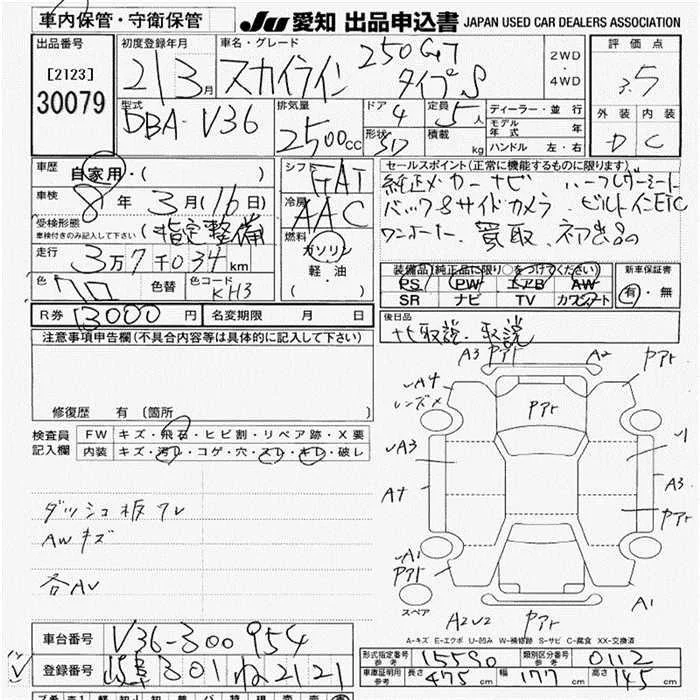 車内保管・守衛保管 JU 愛知 出品申込書 JAPAN USED CAR DEALERS ASSOCIATION
出品番号 初度登録年月 車名・グレード 2WD ・ 4WD 評価点
[2123] 21 3月 スカイライン 250GT タイプS 3.5
30079 型式 排気量 ドア 4 定員 5人 ディーラー・並行 外装 内装
DBA-V36 2500cc 形状 SD 積載 kg モデル年式 年 D C
ハンドル 左・右
車歴 自家用・( ) シフト FAT セールスポイント(正常に機能するものに限ります)
車検 8年 3月(16日) 冷房 AAC 純正メーカーナビ ハーフレザーシート
受検形態 車検付きのみ記入して下さい (指定整備 バック&サイドカメラ、ビルトインETC
走行 3万7千034km 燃料 ガソリン・軽油・( ) ワンオーナー、買取、初出品
色 クロ 色替 色コード KH3 装備品(純正品に限り○をつけてください) 新車保証書
PS PW エアB AW 有・無
SR ナビ TV カワシート
R券 13000円 名変期限 月 日 後日品
注意事項申告欄(不具合内容等は具体的に記入して下さい) ナビ取説、取説
修復歴 有 (箇所 )
検査員記入欄 FW キズ・飛石・ヒビ割・リペア跡・X要
内装 キズ・汚レ・コゲ・穴・スレ・キレ・破レ
A3 アアト A2 アアト
A4
アアト
A3 1
A4 A3
アアト
ダッシュ板ワレ
AWキズ
A1
アアト
各AU
スペア A2U2 アアト A1
A-キズ E-エクボ U-凹み W-補修跡 S-サビ C-腐食 XX-交換済
車台番号 V36-300954 形式指定番号 参考 15590 類別区分番号 参考 0112
登録番号 301 ね2121 車庫証明用 参考 長さ 475cm 幅 177cm 高さ 145cm